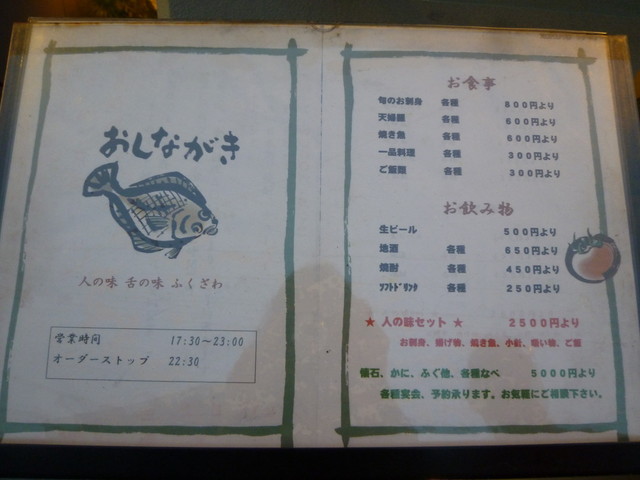 おしながき
人の味 舌の味 ふくざわ
営業時間 17:30～23:00
オーダーストップ 22:30
お食事
旬のお刺身 各種 800円より
天婦羅 各種 600円より
焼き魚 各種 600円より
一品料理 各種 300円より
ご飯類 各種 300円より
お飲み物
生ビール 500円より
地酒 各種 650円より
焼酎 各種 450円より
ソフトドリンク 各種 250円より
★ 人の味セット ★ 2500円より
お刺身、揚げ物、焼き魚、小鉢、吸い物、ご飯
懐石、かに、ふぐ他、各種なべ 5000円より
各種宴会、予約承ります。お気軽にご相談下さい。